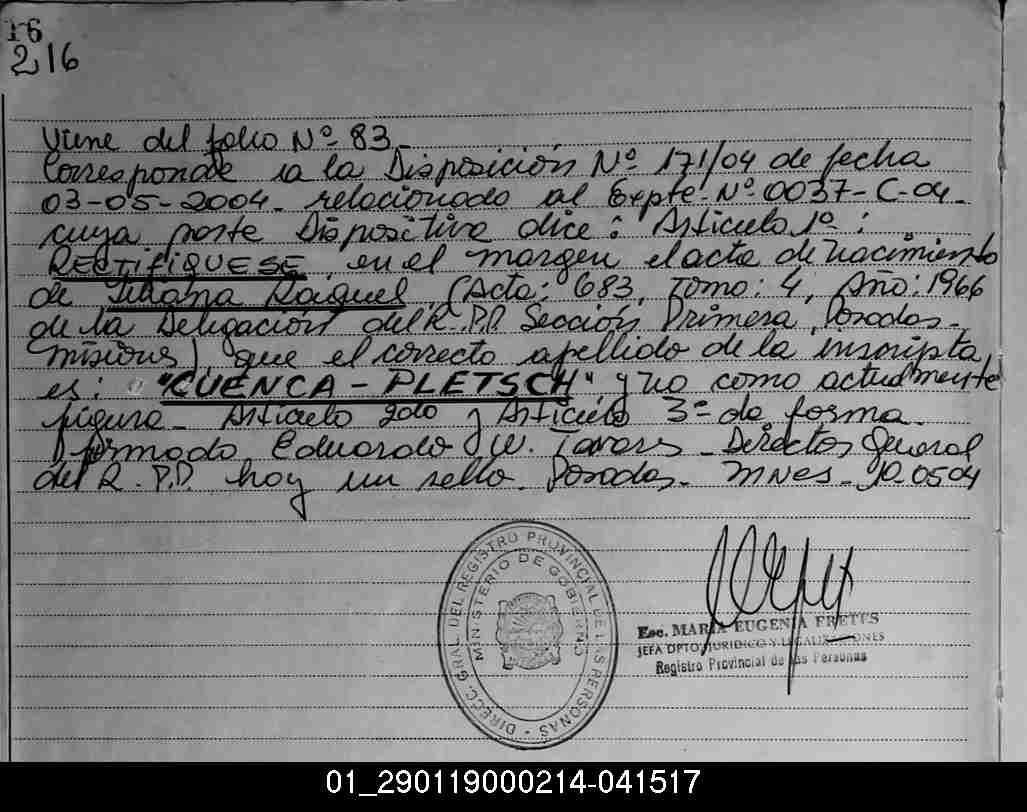 16
216
Viene del folio Nº 83.
Corresponde a la Disposición Nº 171/04 de fecha
03-05-2004. relacionado al Expte. Nº 0037-C-04.
cuya parte Dispositiva dice: Articulo 1º:
RECTIFIQUESE en el margen el acta de nacimiento
de Raquel (Acta: 683, Tomo: 4, Año: 1966
de la Delegación del R.P.P. Sección Primera, Posadas-
misiones) que el correcto apellido de la inscripta,
es: "CUENCA-PLETSCH" y no como actualmente
figura. Articulo 2do y Articulo 3º de forma.
firmado Eduardo W. Tavares Director General
del R.P.P. hoy un sello. Posadas. MNES.
DIRECC. GRAL. DEL REGISTRO PROVINCIAL DE LAS PERSONAS -
MINISTERIO DE GOBIERNO
Esc. MARIA EUGENIA FRETES
JEFA DPTO. JURIDICO Y LEGALIZACIONES
Registro Provincial de las Personas
01_290119000214-041517